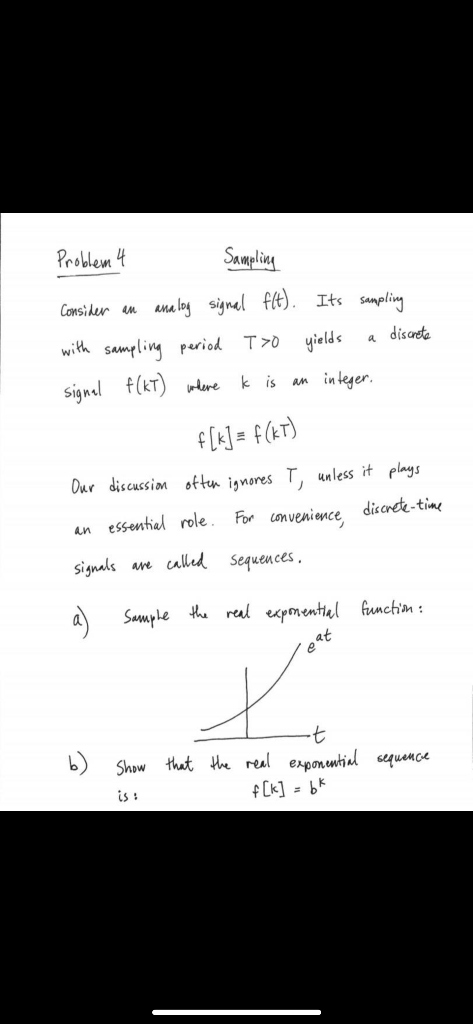 Problem 4 Sampling
Consider an analog signal f(t). Its sampling
with sampling period T>0 yields a discrete
signal f(kT) where k is an integer.
f[k] ≡ f(kT)
Our discussion often ignores T, unless it plays
an essential role. For convenience, discrete-time
signals are called sequences.
a) Sample the real exponential function:
e^at
t
b) Show that the real exponential sequence
is: f[k] = b^k